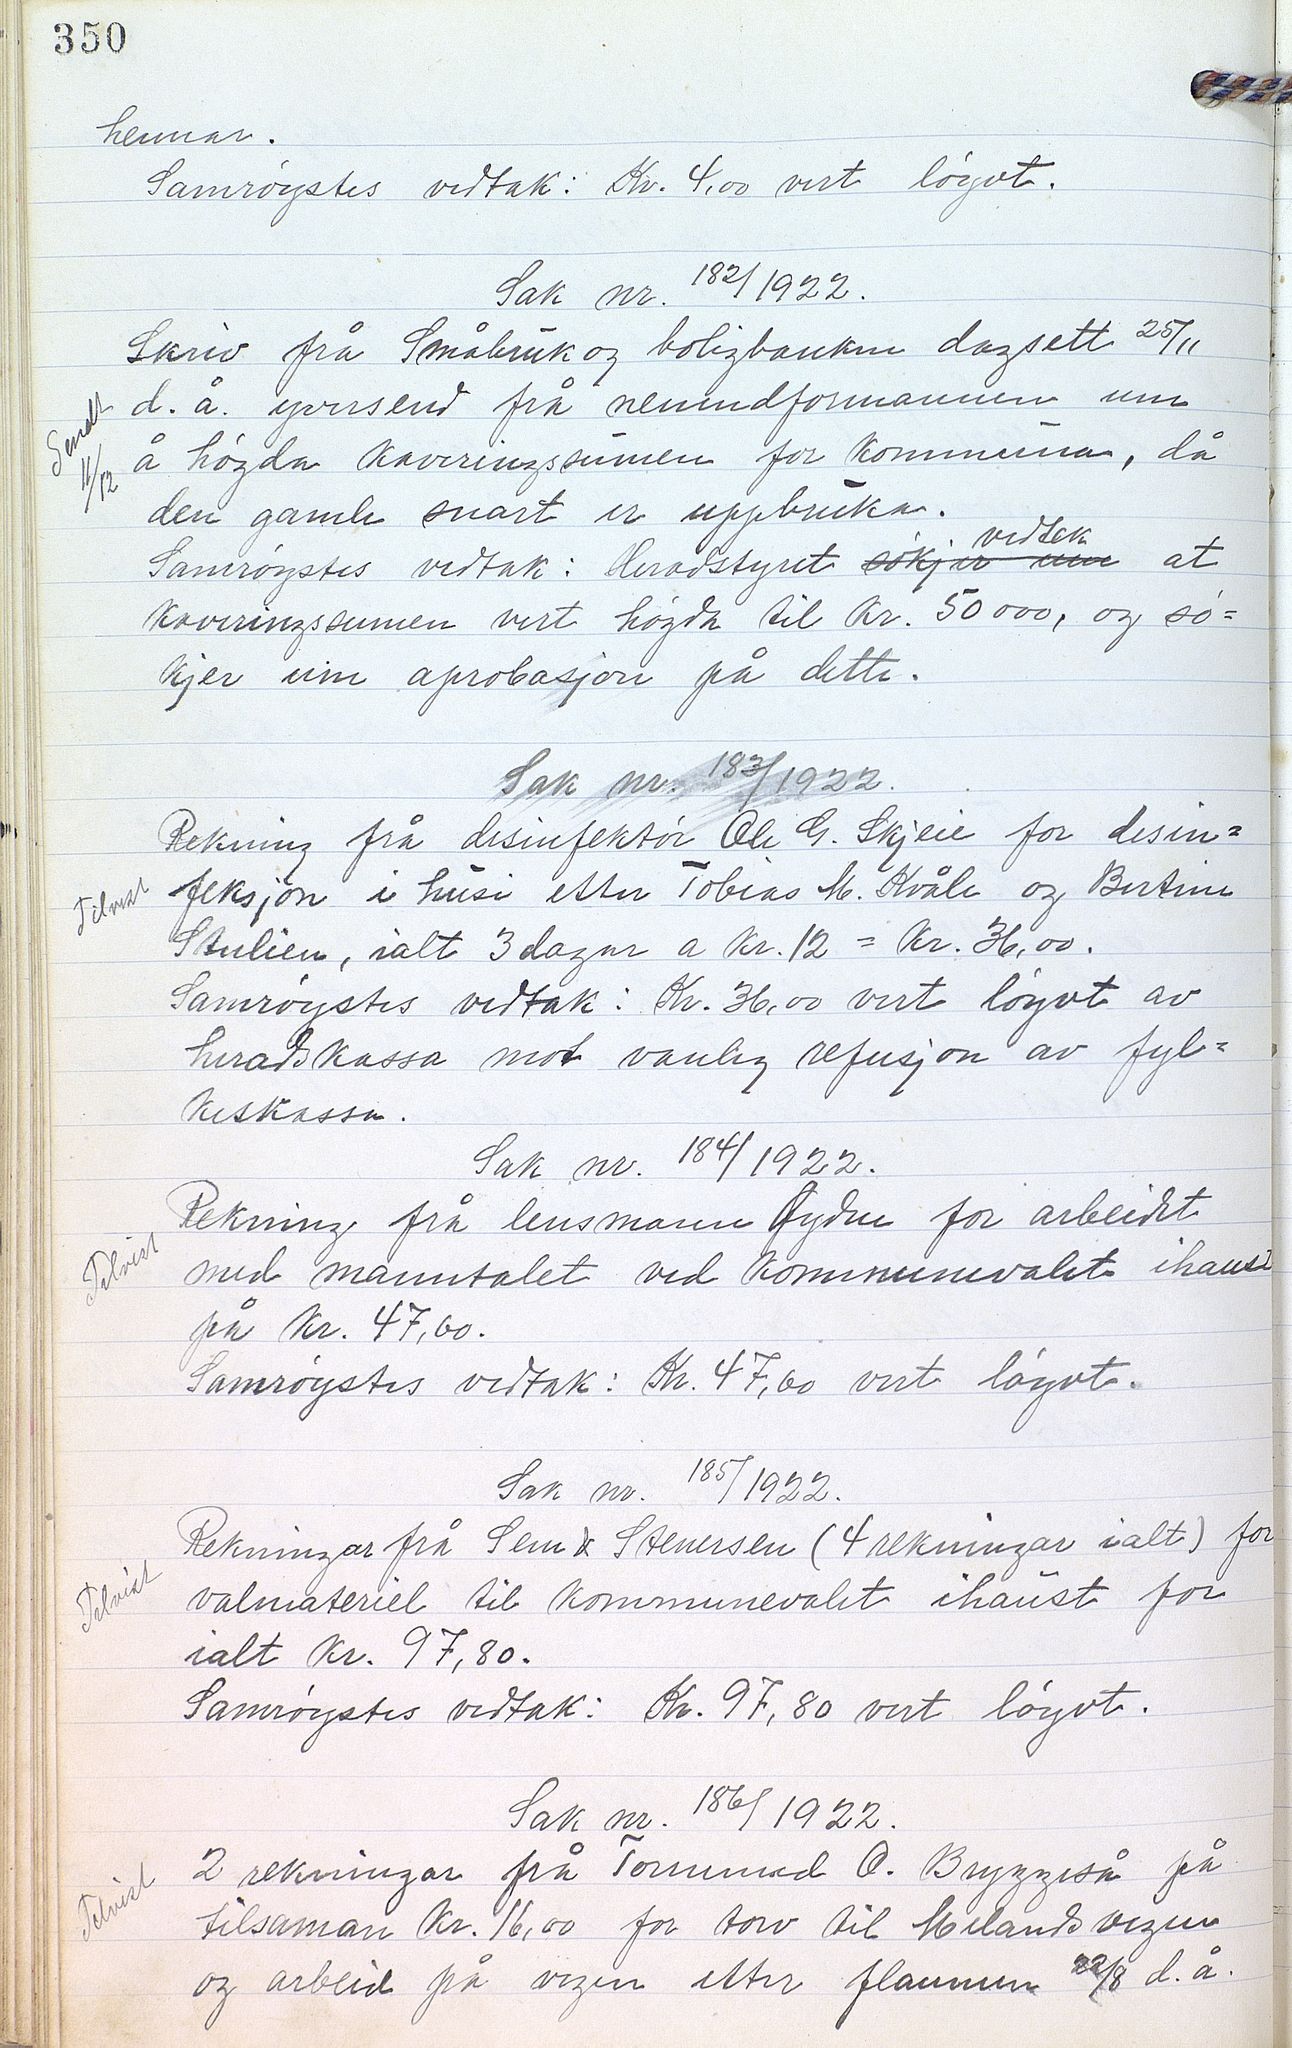 350
heimar.
Samrøystes vedtak: Kr. 4,00 vert løyvt.
Sak nr. 182/1922.
Skriv frå Småbruk og boligbanken dagsett 25/11
d. å. yversend frå nemndformannen um
Sendt 11/12
å høgda kaveringssumen for kommuna, då
den gamle snart er uppbruka.
Samrøystes vedtak: Heradstyret søkjer um vedtek at
kaveringssumen vert høgda til kr. 50 000, og sø=
kjer um aprobasjon på dette.
Sak nr. 183/1922.
Rekning frå desinfektør Ole G. Skjeie for desin=
Tilvist
feksjon i husi etter Tobias M. Kvåle og Bertine
Stulien, ialt 3 dagar a kr. 12 = kr. 36,00.
Samrøystes vedtak: Kr. 36,00 vert løyvt av
heradskassa mot vanleg refusjon av fyl=
keskassa.
Sak nr. 184/1922.
Rekning frå lensmann Øydne for arbeidet
Tilvist
med manntalet ved kommunevalet ihaust
på kr. 47,60.
Samrøystes vedtak: Kr. 47,60 vert løyvt.
Sak nr. 185/1922.
Rekningar frå Sem & Stenersen (4 rekningar ialt) for
Tilvist
valmateriel til kommunevalet ihaust for
ialt kr. 97,80.
Samrøystes vedtak: Kr. 97,80 vert løyvt.
Sak nr. 186/1922.
2 rekningar frå Tormund O. Bryggeså på
Tilvist
tilsaman kr. 16,00 for torv til Melandsvegen
og arbeid på vegen etter flaumen 22/8 d. å.